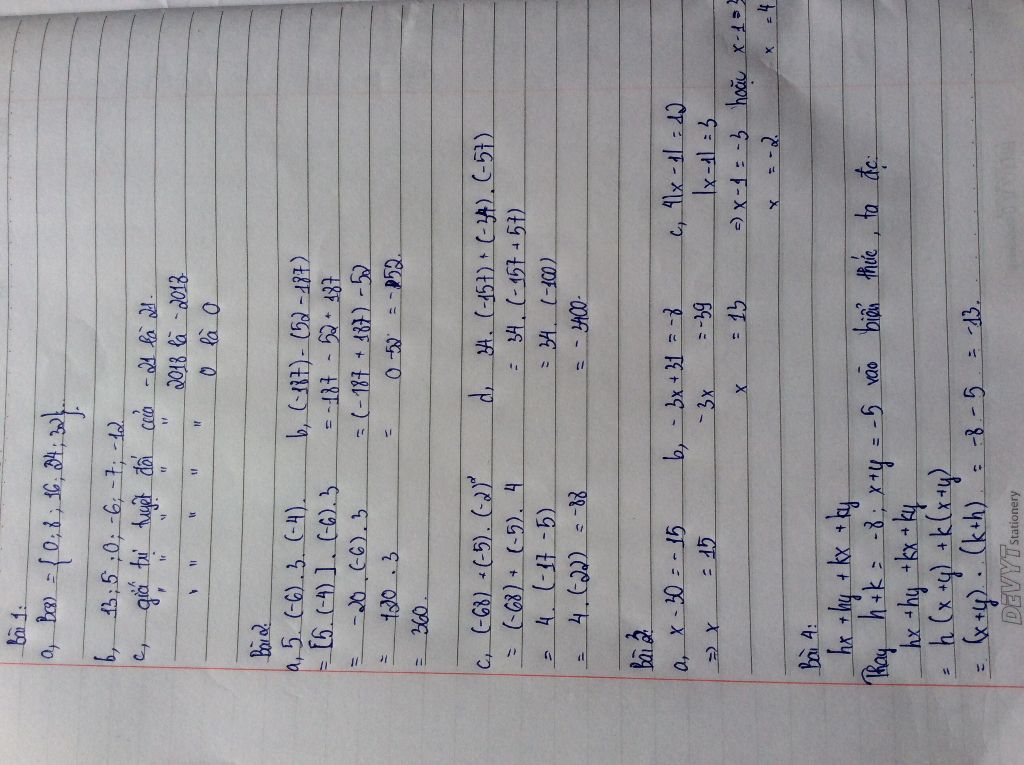 Bài 1:
a, B(8) = {0; 8; 16; 24; 32}.
b, 13; 5; 0; -6; -7; -12
c, giá trị tuyệt đối của -21 là 21.
" " " " " 2018 là -2018
" " " " " 0 là 0
Bài 2
a, 5. (-6). 3. (-4).
= [5. (-4)]. (-6). 3
= -20. (-6). 3
= 120. 3
= 360.
b, (-187) - (52 - 187)
= -187 - 52 + 187
= (-187 + 187) - 52
= 0 - 52 = -52.
c, (-68) + (-5). (-2)²
= (-68) + (-5). 4
= 4. (-17 - 5)
= 4. (-22) = -88
d, 34. (-157) + (-34). (-57)
= 34. (-157 + 57)
= 34. (-100)
= -3400.
Bài 3
a, x - 30 = -15
=> x = 15
b, -3x + 31 = -8
-3x = -39
x = 13
c, 4|x - 1| = 12
|x - 1| = 3
=> x - 1 = -3 hoặc x - 1 = 3
x = -2. x = 4
Bài 4:
hx + hy + kx + ky
Thay h + k = -8; x + y = -5 vào biểu thức, ta đc:
hx + hy + kx + ky
= h(x + y) + k(x + y)
= (x + y). (k + h) = -8 - 5 = -13.
DEVYT Stationery